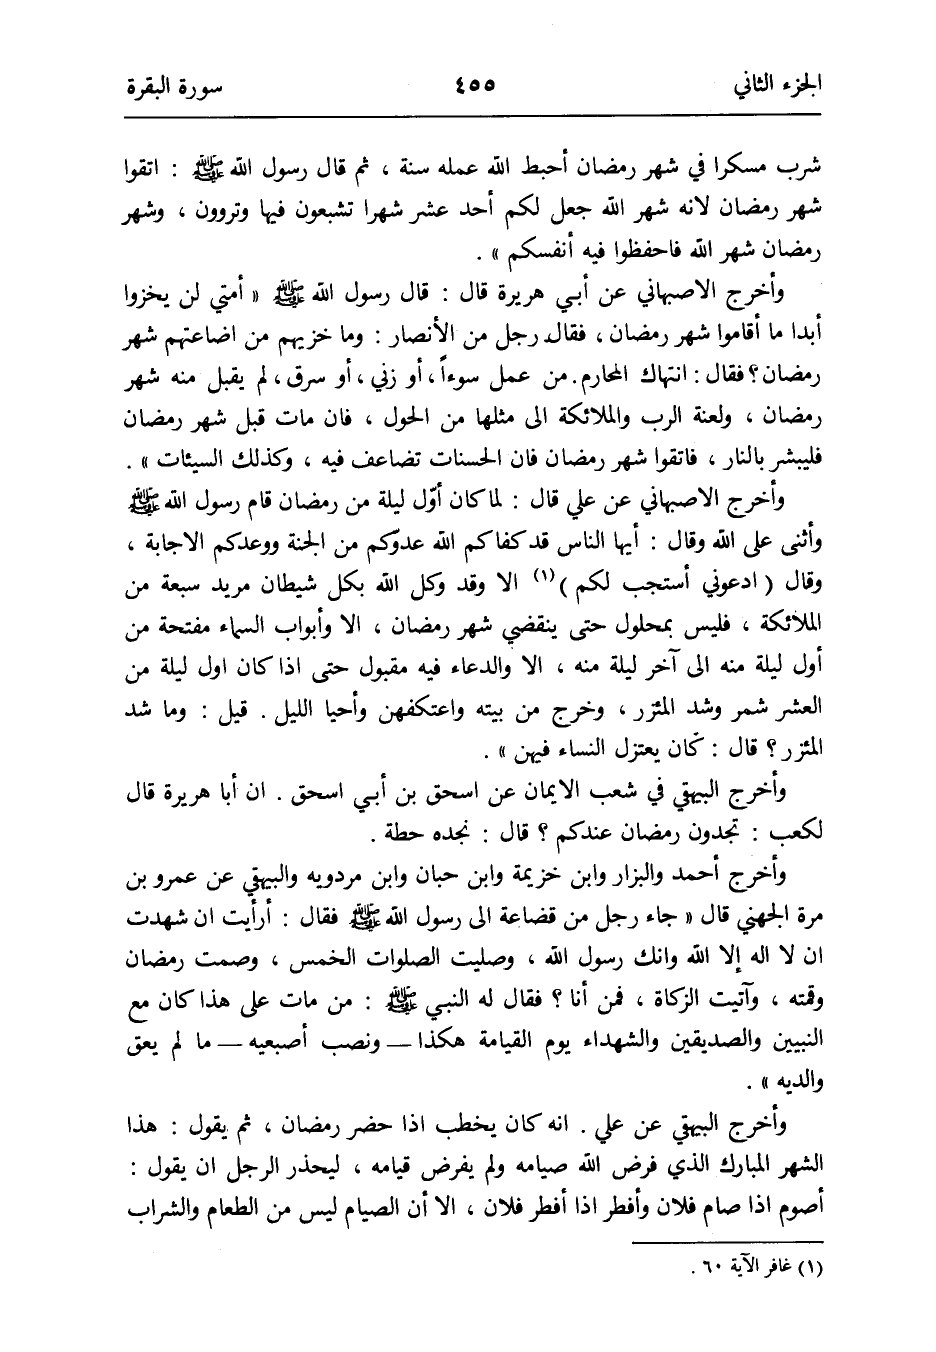 الجزء الثاني ٤٥٥ سورة البقرة
شرب مسكرا في شهر رمضان أحبط الله عمله سنة ، ثم قال رسول الله ﷺ : اتقوا
شهر رمضان لانه شهر الله جعل لكم أحد عشر شهرا تشبعون فيها وتروون ، وشهر
رمضان شهر الله فاحفظوا فيه أنفسكم » .
وأخرج الاصبهاني عن أبي هريرة قال : قال رسول الله ﷺ « أمتي لن يخزوا
أبدا ما أقاموا شهر رمضان ، فقال رجل من الأنصار : وما خزيهم من اضاعتهم شهر
رمضان؟ فقال : انتهاك المحارم. من عمل سوءاً ، أو زني ، أو سرق ، لم يقبل منه شهر
رمضان ، ولعنة الرب والملائكة الى مثلها من الحول ، فان مات قبل شهر رمضان
فليبشر بالنار ، فاتقوا شهر رمضان فان الحسنات تضاعف فيه ، وكذلك السيئات » .
وأخرج الاصبهاني عن علي قال : لما كان أوّل ليلة من رمضان قام رسول الله ﷺ
وأثنى على الله وقال : أيها الناس قد كفاكم الله عدوّكم من الجنة ووعدكم الاجابة ،
وقال ( ادعوني أستجب لكم )(١) الا وقد وكل الله بكل شيطان مريد سبعة من
الملائكة ، فليس بمحلول حتى ينقضي شهر رمضان ، الا وأبواب السماء مفتحة من
أول ليلة منه الى آخر ليلة منه ، الا والدعاء فيه مقبول حتى اذا كان اول ليلة من
العشر شمر وشد المئزر ، وخرج من بيته واعتكفهن وأحيا الليل . قيل : وما شد
المئزر ؟ قال : كان يعتزل النساء فيهن » .
وأخرج البيهقي في شعب الايمان عن اسحق بن أبي اسحق . ان أبا هريرة قال
لكعب : تجدون رمضان عندكم ؟ قال : نجده حطة .
وأخرج أحمد والبزار وابن خزيمة وابن حبان وابن مردويه والبيهقي عن عمرو بن
مرة الجهني قال « جاء رجل من قضاعة الى رسول الله ﷺ فقال : أرأيت ان شهدت
ان لا اله إلا الله وانك رسول الله ، وصليت الصلوات الخمس ، وصمت رمضان
وقمته ، وآتيت الزكاة ، فمن أنا ؟ فقال له النبي ﷺ : من مات على هذا كان مع
النبيين والصديقين والشهداء يوم القيامة هكذا — ونصب أصبعيه — ما لم يعق
والديه » .
وأخرج البيهقي عن علي . انه كان يخطب اذا حضر رمضان ، ثم يقول : هذا
الشهر المبارك الذي فرض الله صيامه ولم يفرض قيامه ، ليحذر الرجل ان يقول :
أصوم اذا صام فلان وأفطر اذا أفطر فلان ، الا أن الصيام ليس من الطعام والشراب
(١) غافر الآية ٦٠ .